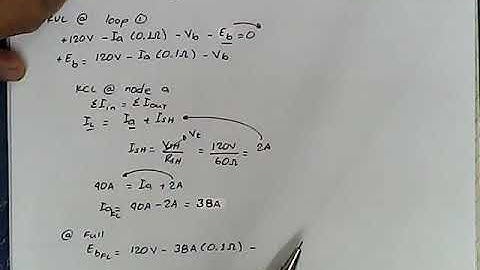 KVL @ loop ①
+120V - Ia (0.1Ω) - Vb - Eb = 0
+Eb = 120V - Ia (0.1Ω) - Vb
KCL @ node a
ΣIin = ΣIout
IL = Ia + ISH
ISH = VSH/RSH = 120V/60Ω = 2A
Vt
40A = Ia + 2A
IaFL = 40A - 2A = 38A
@ Full
EbFL = 120V - 38A (0.1Ω) -